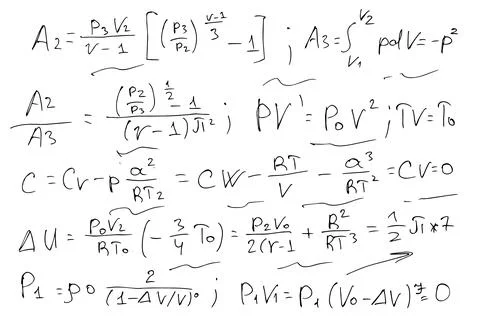 A₂ = P₃V₂/(γ-1) [(P₃/P₂)^((γ-1)/3) - 1] ; A₃ = ∫_V₁^V₂ pdV = -p²
A₂/A₃ = ((P₂/P₃)^(1/2) - 1)/((γ-1)π²) ; PV¹ = P₀V² ; TV = T₀
C = Cv - p a²/RT₂ = CW - RT/V - a³/RT² = CV = 0
ΔU = P₀V₂/RT₀ (-3/4 T₀) = P₂V₀/2(γ-1 + R²/RT³ = 1/2 π*7
P₁ = po 2/(1-ΔV/V)⁰ ; P₁V₁ = P₁(V₀-ΔV)⁷ = 0